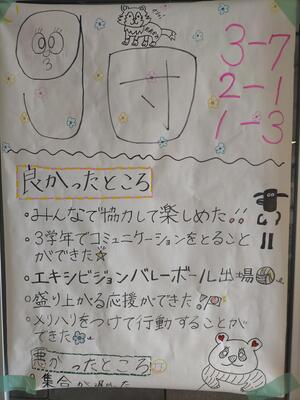 3-7
2-1
1-3
良かったところ
・みんなで協力して楽しめた!!
・3学年でコミュニケーションをとること
ができた
・エキシビジョンバレーボール出場
・盛り上がる応援ができた!
・メリハリをつけて行動することが
できた
悪かったところ
・集合が遅れた